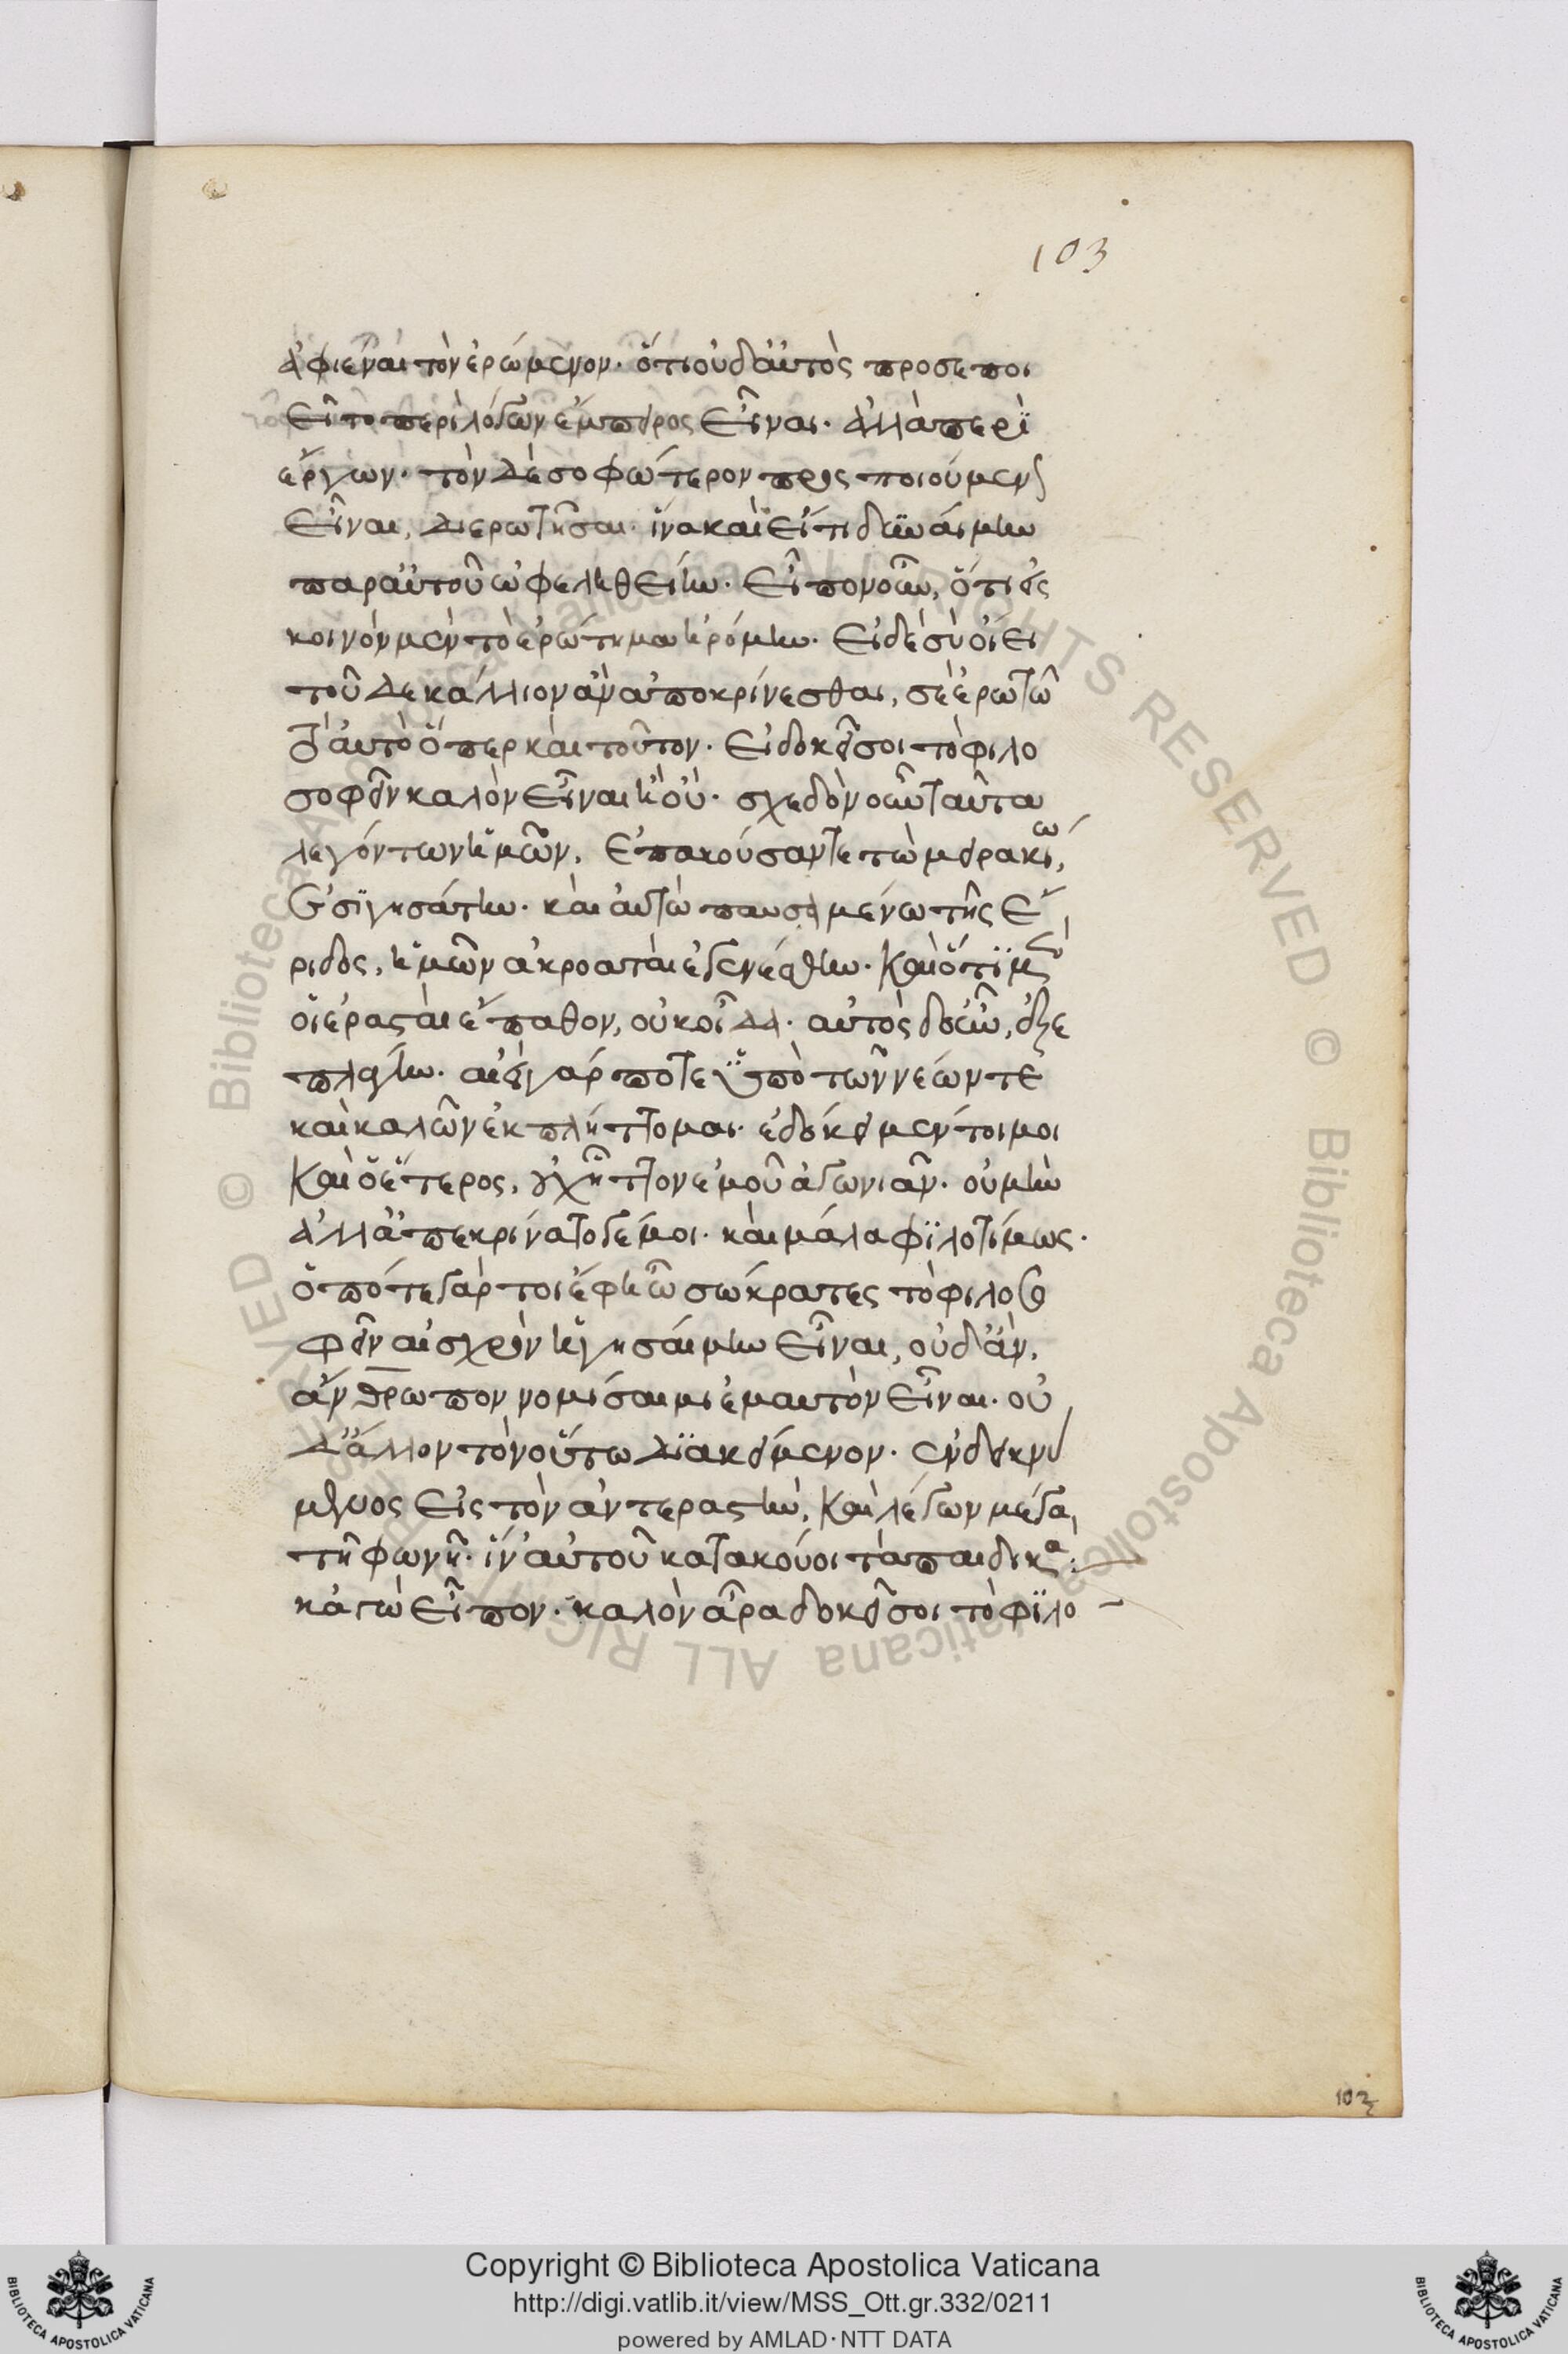 103
ἀφιέναι τὸν ἐρώμενον· ὅτι οὐδ' αὐτὸς προσεποι
εῖτο περὶ λόγων ἔμπειρος εἶναι· ἀλλὰ περὶ
ἔργων· τὸν δὲ σοφώτερον προσποιούμενον
εἶναι, διερωτῆσαι· ἵνα καὶ εἴ τι δυναίμην
παρ' αὐτοῦ ὠφεληθείην· εἶπον οὖν, ὅτι εἰς
κοινὸν μὲν τὸ ἐρώτημα ἠρόμην· εἰ δὲ σὺ οἴει
τοῦδε κάλλιον ἂν ἀποκρίνεσθαι, σὲ ἐρωτῶ
τὸ αὐτὸ ὅπερ καὶ τοῦτον· εἰ δοκεῖ σοι τὸ φιλο
σοφεῖν καλὸν εἶναι ἢ οὔ· σχεδὸν οὖν ταῦτα
λεγόντων ἡμῶν, ἐπακούσαντε τὼ μειρακίω,
ἐσιγησάτην· καὶ αὐτὼ παυσαμένω τῆς ἔ
ριδος, ἡμῶν ἀκροαταὶ ἐγενέσθην· καὶ ὅτι μὲν
οἱ ἐρασταὶ ἔπαθον, οὐκ οἶδα· αὐτὸς δ' οὖν, ἐξε
πλάγην· ἀεὶ γάρ ποτε ὑπὸ τῶν νέων τε
καὶ καλῶν ἐκπλήττομαι· ἐδόκει μέντοι μοι
καὶ ὁ ἕτερος, οὐχ ἧττον ἐμοῦ ἀγωνιᾶν· οὐ μὴν
ἀλλ' ἀπεκρίνατό γέ μοι· καὶ μάλα φιλοτίμως·
ὁπότε γάρ τοι ἔφη ὦ σώκρατες τὸ φιλοσο
φεῖν αἰσχρὸν ἡγησαίμην εἶναι, οὐδ' ἂν,
ἄνθρωπον νομίσαιμι ἐμαυτὸν εἶναι· οὐ
δ' ἄλλον τὸν οὕτω διακείμενον· ἐνδεικνύ
μενος εἰς τὸν ἀντεραστὴν, καὶ λέγων μεγάλῃ
τῇ φωνῇ· ἵν' αὐτοῦ κατακούοι τὰ παιδικά·
κἀγὼ εἶπον· καλὸν ἄρα δοκεῖ σοι τὸ φιλο
102
Copyright © Biblioteca Apostolica Vaticana
http://digi.vatlib.it/view/MSS_Ott.gr.332/0211
powered by AMLAD·NTT DATA